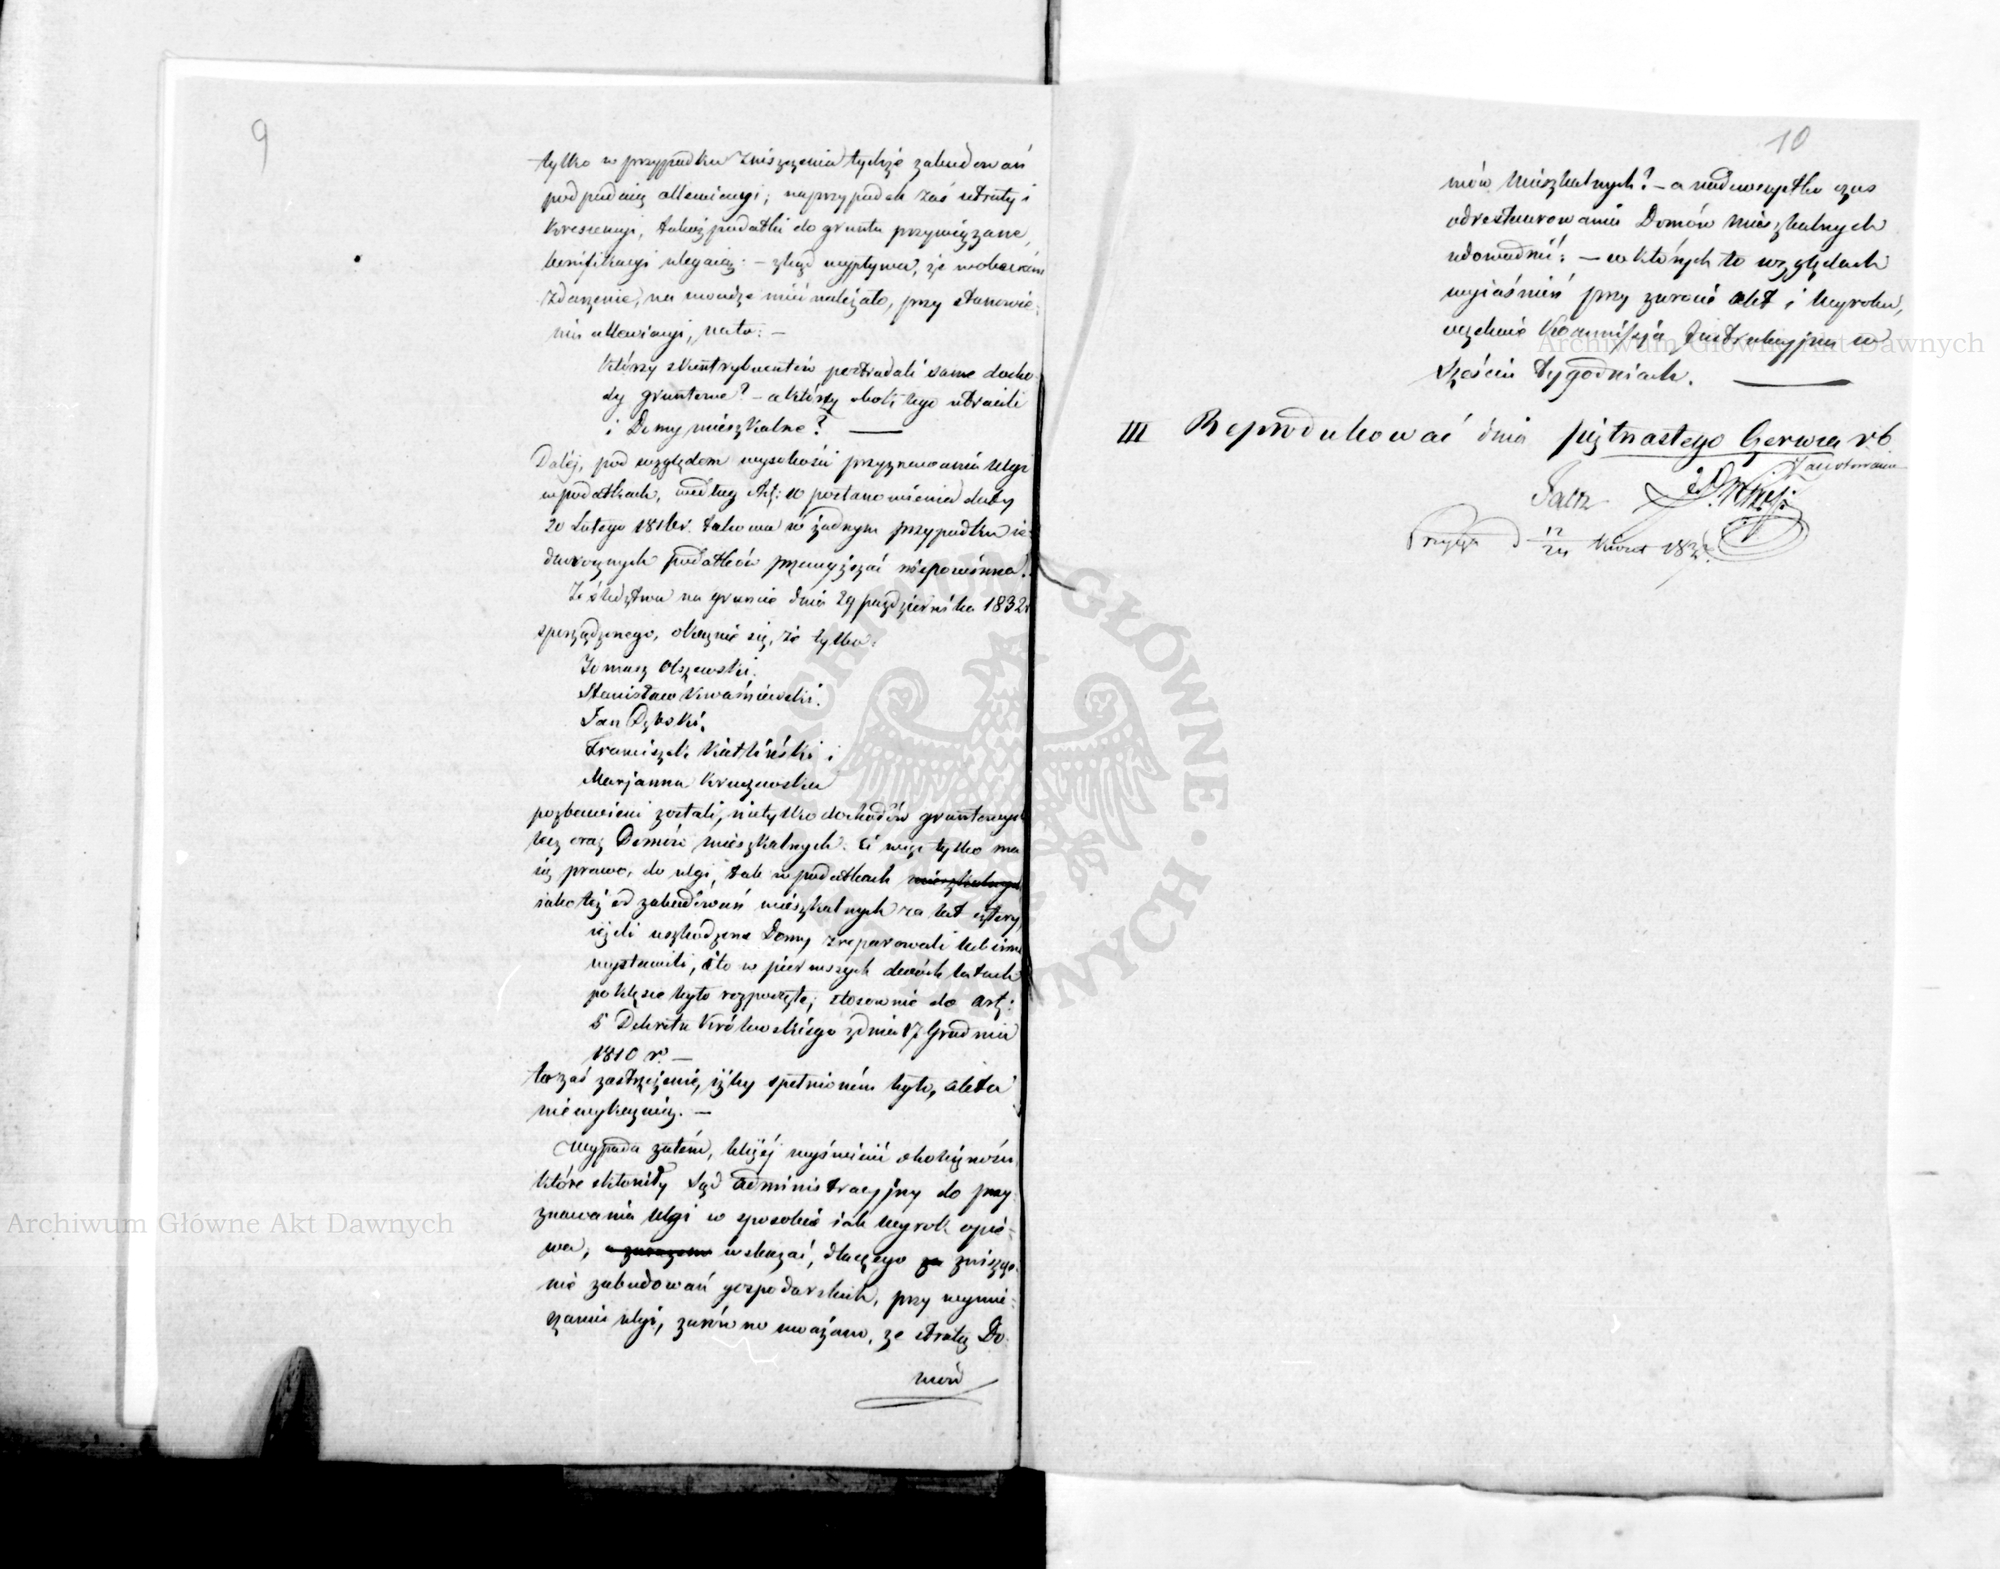 9
tylko w przypadku zniszczenia tychże zabudowań
podpadaią allewiacyi; na przypadek zaś utraty i
krescencyi, takież podatki do gruntu przywiązane,
bonifikacyi ulegaią: – zkąd wypływa, że w obecném
zdarzenie, na uwadze mieć należało, przy stanowie-
niu allewiacyi, na to: –
którzy z kontrybuentów postradali same docho-
dy gruntowe? – a którzy obok tego utracili
i Domy mieszkalne? —
Daléj, pod względem wysokości przyznawania ulgi
w podatkach, według Art: postanowienia daty
20 Lutego 1816 r. takowa w żadnym przypadku ie-
dnorocznych podatków przewyższać niepowinna.
Ze śledztwa na gruncie dnia 29 października 1832 r
sporządzonego, okazuie się, że tylko:
Tomasz Olszewski.
Stanisław Kwaśniewski.
Jan Dębski,
Franciszek Kietliński i
Marjanna Kruszewska
pozbawieni zostali, nietylko dochodów gruntowych
lecz oraz Domów mieszkalnych. Ci więc tylko ma-
ią prawo, do ulgi, tak w podatkach mieszkalnych
iako też od zabudowań mieszkalnych za lat cztery
ieżeli uszkodzone Domy zreparowali lub inne
wystawili, i to w pierwszych dwóch latach
po klęsce było rozpoczęte; stosownie do Art:
5 Dekretu Królewskiego z dnia 17 Grudnia
1810 r. –
to zaś zastrzeżenie, iżby spełnioném było, akta
niewykazuią. –
Wypada zatém, bliżéj wyświecić okoliczności
które skłoniły Sąd Administracyjny do przy-
znawania ulgi w sposobie iak wyrok opié-
wa, a zarazem wskazać, dlaczego za zniszcze-
nie zabudowań gospodarskich, przy wymie-
rzaniu ulgi, zarówno uważano, ze stratą Do-
mów
10
mów Mieszkalnych? – a nadewszystko czas
odrestaurowania Domów mieszkalnych
udowodnić: – w których to względach
wyiaśnień przy zwrocie akt i Wyroku,
oczekuie Kommissja Instrukcyjna w
sześciu tygodniach. —
III Reprodukować dnia piętnastego Czerwca r b
12
24
Archiwum Główne Akt Dawnych
Archiwum Główne Akt Dawnych
ARCHIWUM GŁÓWNE · AKT DAWNYCH ·